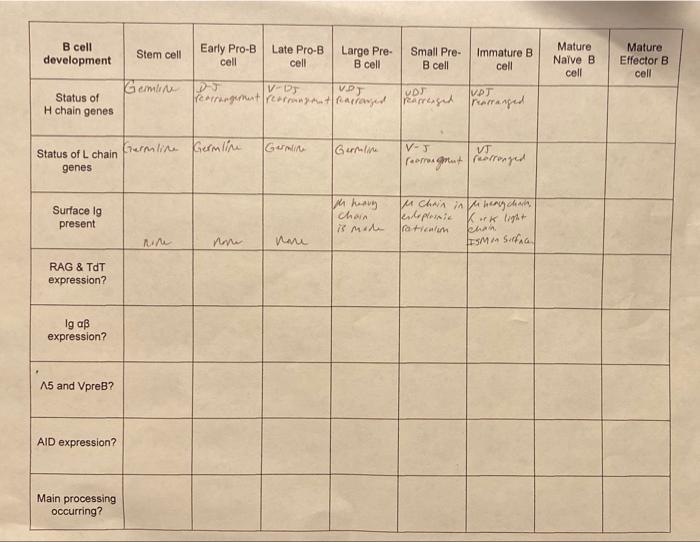 B cell development
Stem cell
Early Pro-B cell
Late Pro-B cell
Large Pre-B cell
Small Pre-B cell
Immature B cell
Mature Naïve B cell
Mature Effector B cell
Status of H chain genes
Germline
D-J rearrangement
V-DJ rearrangement
VDJ rearranged
VDJ rearranged
VDJ rearranged
Status of L chain genes
Germline
Germline
Germline
Germline
V-J rearrangment
VJ rearranged
Surface Ig present
none
none
none
μ heavy chain is made
μ chain in endoplasmic reticulum
μ heavy chain, λ or κ light chain IgM on surface
RAG & TdT expression?
Ig αβ expression?
Λ5 and VpreB?
AID expression?
Main processing occurring?